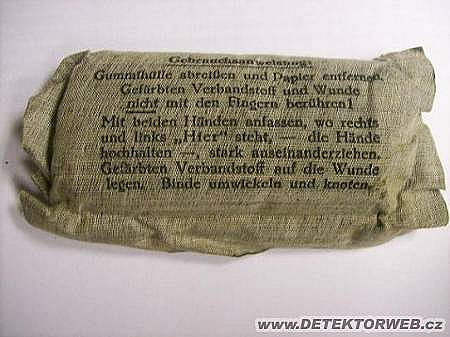 Gebrauchsanweisung:
Gummihülle abreißen und Papier entfernen.
Gefärbten Verbandstoff und Wunde
nicht mit den Fingern berühren!
Mit beiden Händen anfassen, wo rechts
und links „Hier" steht, — die Hände
hochhalten —, stark auseinanderziehen.
Gefärbten Verbandstoff auf die Wunde
legen. Binde umwickeln und knoten.
www.DETEKTORWEB.cz